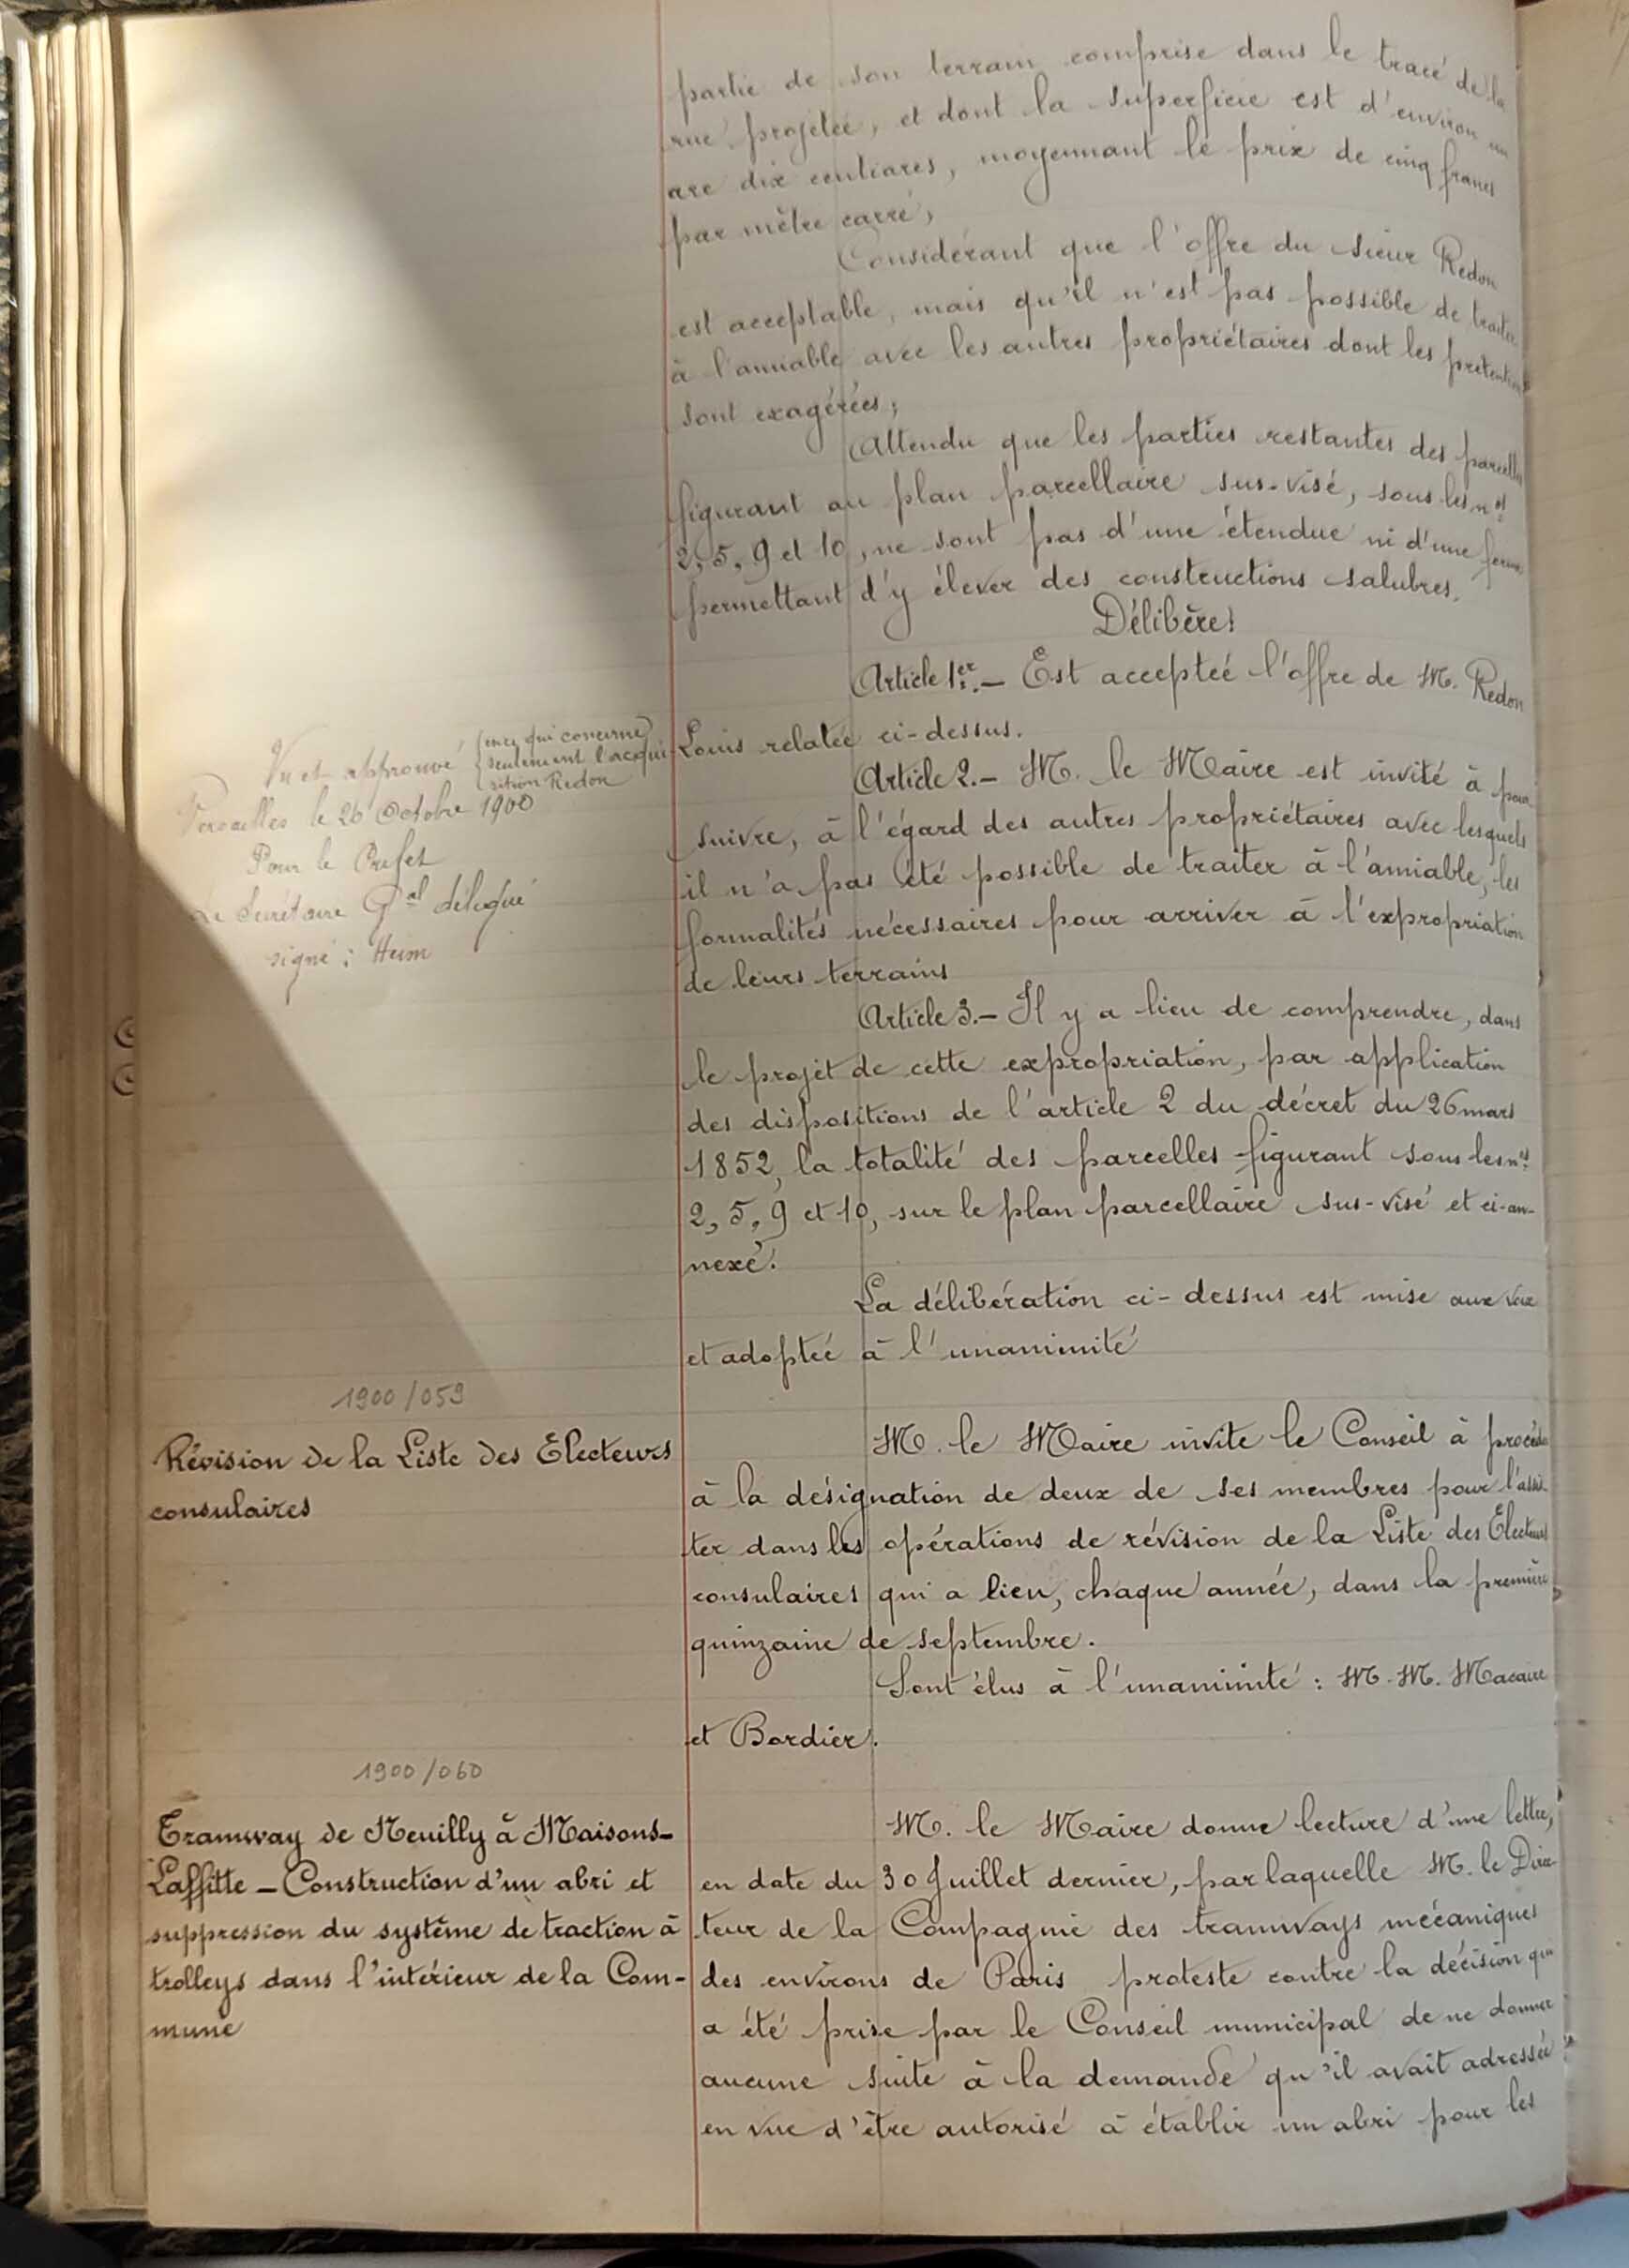 partie de son terrain comprise dans le tracé de la
rue projetée, et dont la superficie est d'environ un
are dix centiares, moyennant le prix de cinq francs
par mètre carré;
Considérant que l'offre du sieur Redon
est acceptable, mais qu'il n'est pas possible de traiter
à l'amiable avec les autres propriétaires dont les prétentions
sont exagérées;
Attendu que les parties restantes des parcelles
figurant au plan parcellaire sus-visé, sous les nos
2, 5, 9 et 10, ne sont pas d'une étendue ni d'une forme
permettant d'y élever des constructions salubres.
Délibère:
Article 1er.- Est acceptée l'offre de M. Redon
Louis relatée ci-dessus.
Article 2.- M. le Maire est invité à pour
suivre, à l'égard des autres propriétaires avec lesquels
il n'a pas été possible de traiter à l'amiable, les
formalités nécessaires pour arriver à l'expropriation
de leurs terrains
Vu et approuvé (en ce qui concerne
seulement l'acqui-
sition Redon
Versailles le 26 Octobre 1900
Pour le Préfet
Le Secrétaire Gal délégué
signé: Heim
Article 3.- Il y a lieu de comprendre, dans
le projet de cette expropriation, par application
des dispositions de l'article 2 du décret du 26 mars
1852, la totalité des parcelles figurant sous les nos
2, 5, 9 et 10, sur le plan parcellaire sus-visé et ci-an-
nexé.
La délibération ci-dessus est mise aux voix
et adoptée à l'unanimité
1900/059
Révision de la Liste des Électeurs
consulaires
M. le Maire invite le Conseil à procéder
à la désignation de deux de ses membres pour l'assis-
ter dans les opérations de révision de la Liste des Électeurs
consulaires qui a lieu, chaque année, dans la première
quinzaine de septembre.
Sont élus à l'unanimité: M.M. Macaire
et Bordier.
1900/060
Tramway de Neuilly à Maisons-
Laffitte - Construction d'un abri et
suppression du système de traction à
trolleys dans l'intérieur de la Com-
mune
M. le Maire donne lecture d'une lettre,
en date du 30 Juillet dernier, par laquelle M. le Direc-
teur de la Compagnie des tramways mécaniques
des environs de Paris proteste contre la décision qui
a été prise par le Conseil municipal de ne donner
aucune suite à la demande qu'il avait adressée
en vue d'être autorisé à établir un abri pour les